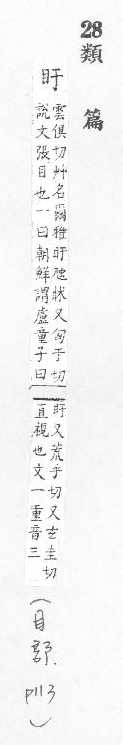 28
類篇
盱
雲俱切艸名爾雅盱虺牀又匈于切
說文張目也一曰朝鮮謂盧童子曰
盱又荒乎切又玄圭切
直視也文一重音三
(目部. p113)